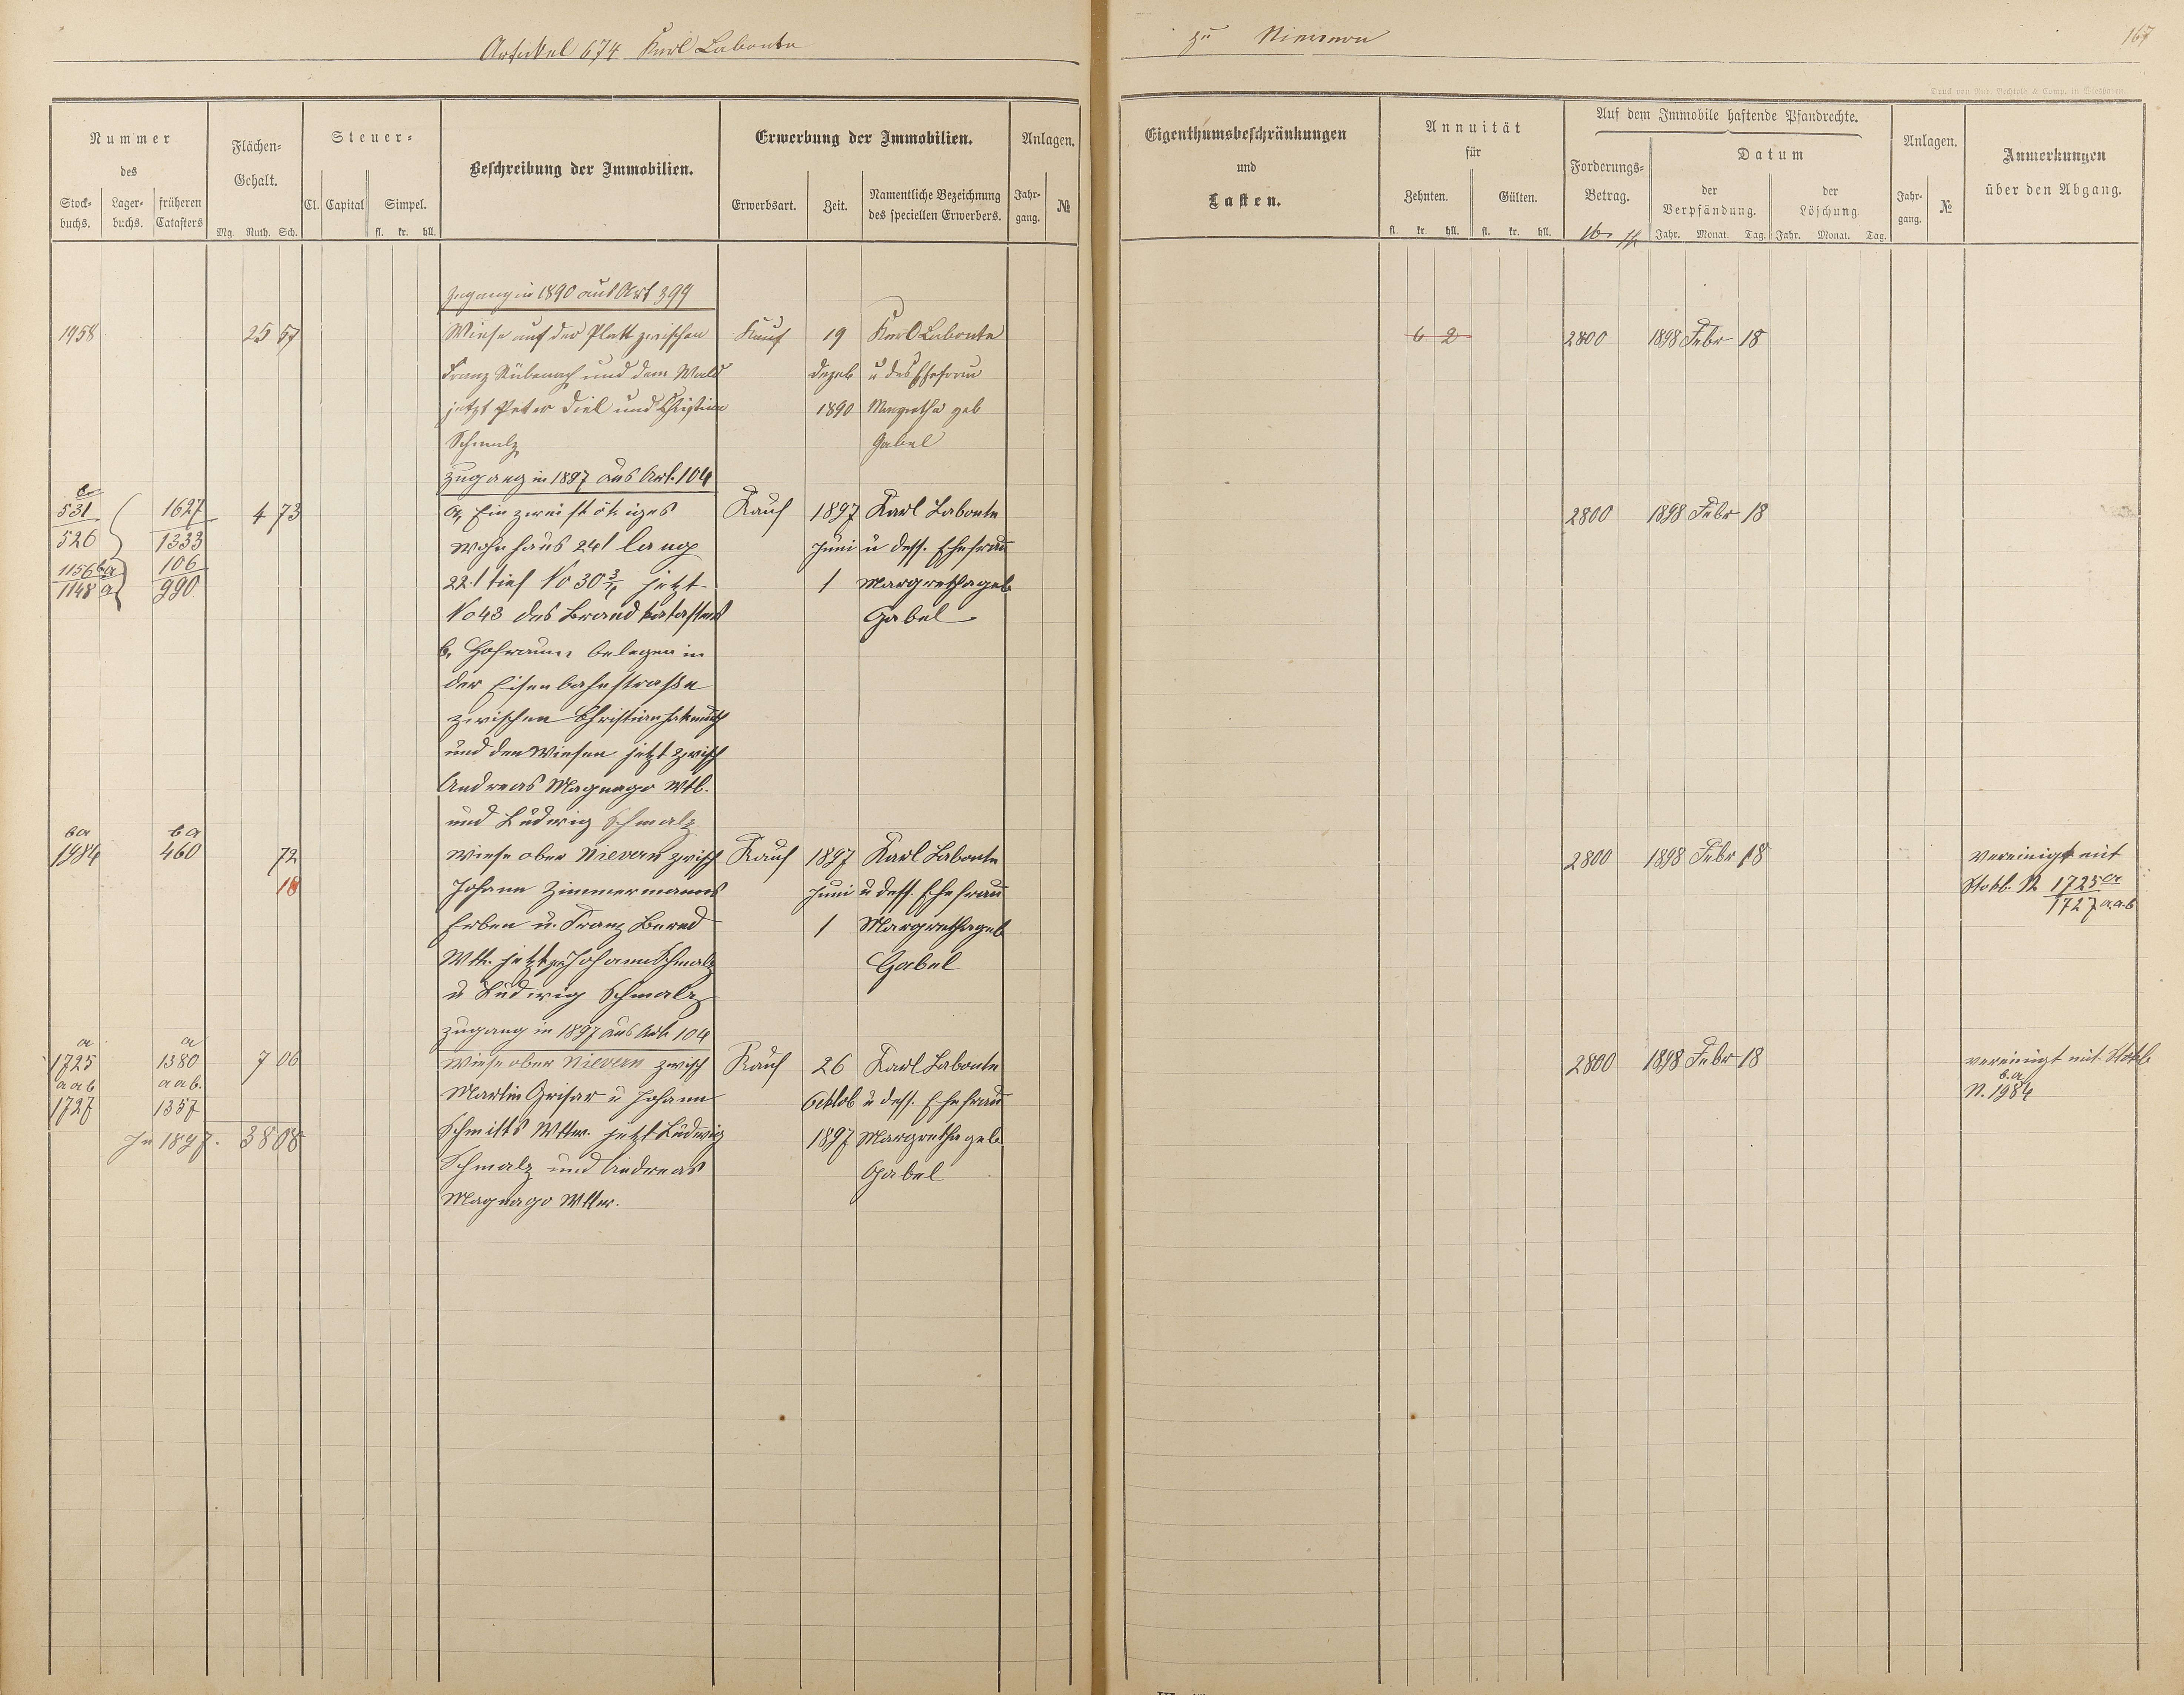 Artikel 674 Karl Labonte
zu Nievern
167
Druck von Rud. Bechtold & Comp. in Wiesbaden.
Nummer
des
Stock-
buchs.
Lager-
buchs.
früheren
Catasters
Flächen-
Gehalt.
Mg. Ruth. Sch.
Steuer-
Cl. Capital Simpel.
fl. kr. hll.
Beschreibung der Immobilien.
Erwerbung der Immobilien.
Erwerbsart. Zeit.
Namentliche Bezeichnung
des speciellen Erwerbers.
Anlagen.
Jahr-
gang.
№
Eigenthumsbeschränkungen
und
Lasten.
Annuität
für
Zehnten. Gülten.
fl. kr. hll. fl. kr. hll.
Auf dem Immobile haftende Pfandrechte.
Forderungs-
Betrag.
Datum
der
Verpfändung.
der
Löschung.
Jahr. Monat. Tag. Jahr. Monat. Tag.
Anlagen.
Jahr-
gang.
№
Anmerkungen
über den Abgang.
Zugang in 1890 aus Art 399
1958 25 57 Wiese auf der Platt zwischen Kauf 19 Karl Labonte 6 2 2800 1898 Febr 18
Franz und dem Wald Dezeb u des Ehefrau
jetzt Peter Diel und Christian 1890 Margretha geb
Schmalz Gabel
Zugang in 1897 aus Art. 104
531 1627 4 73 a, Ein zweistökiges Kauf 1897 Karl Labonte 2800 1898 Febr 18
526 1333 Wohnhaus 24' lang Juni u dess. Ehefrau
1156 ba 106 22' tief No 30 3/4 jetzt 1 Margretha geb
1148 a 990 No 43 des Brandkatasters Gabel
b, Hofraum belegen in
der Eisenbahnstraße
zwischen Christian
und den Wiesen jetzt zwisch
Andreas Magnago Wtb.
und Ludwig Schmalz
ba ba
1984 460 72 Wiese ober Nievern zwisch Kauf 1897 Karl Labonte 2800 1898 Febr 18 Vereinigt mit
18 Johann Zimmermanns Juni u dess. Ehefrau Stokb. N 1725 a
Erben u. Franz Bernd 1 Margretha geb 1727 a.a.b
Wtt. jetzt zw Johann Schmalz Gabel
u Ludwig Schmalz
Zugang in 1897 aus Art. 104
a a
1725 1380 7 06 Wiese ober Nievern zwisch Kauf 26 Karl Labonte 2800 1898 Febr 18 vereinigt mit Stokb
a a b a a b. Martin Grisar u Johann Octob u dess. Ehefrau b.a
1727 1357 N. 1984
In 1897. 38 08 Schmitts Wttw. jetzt Ludwig 1897 Margretha geb
Schmalz und Andreas Gabel
Magnago Wttw.